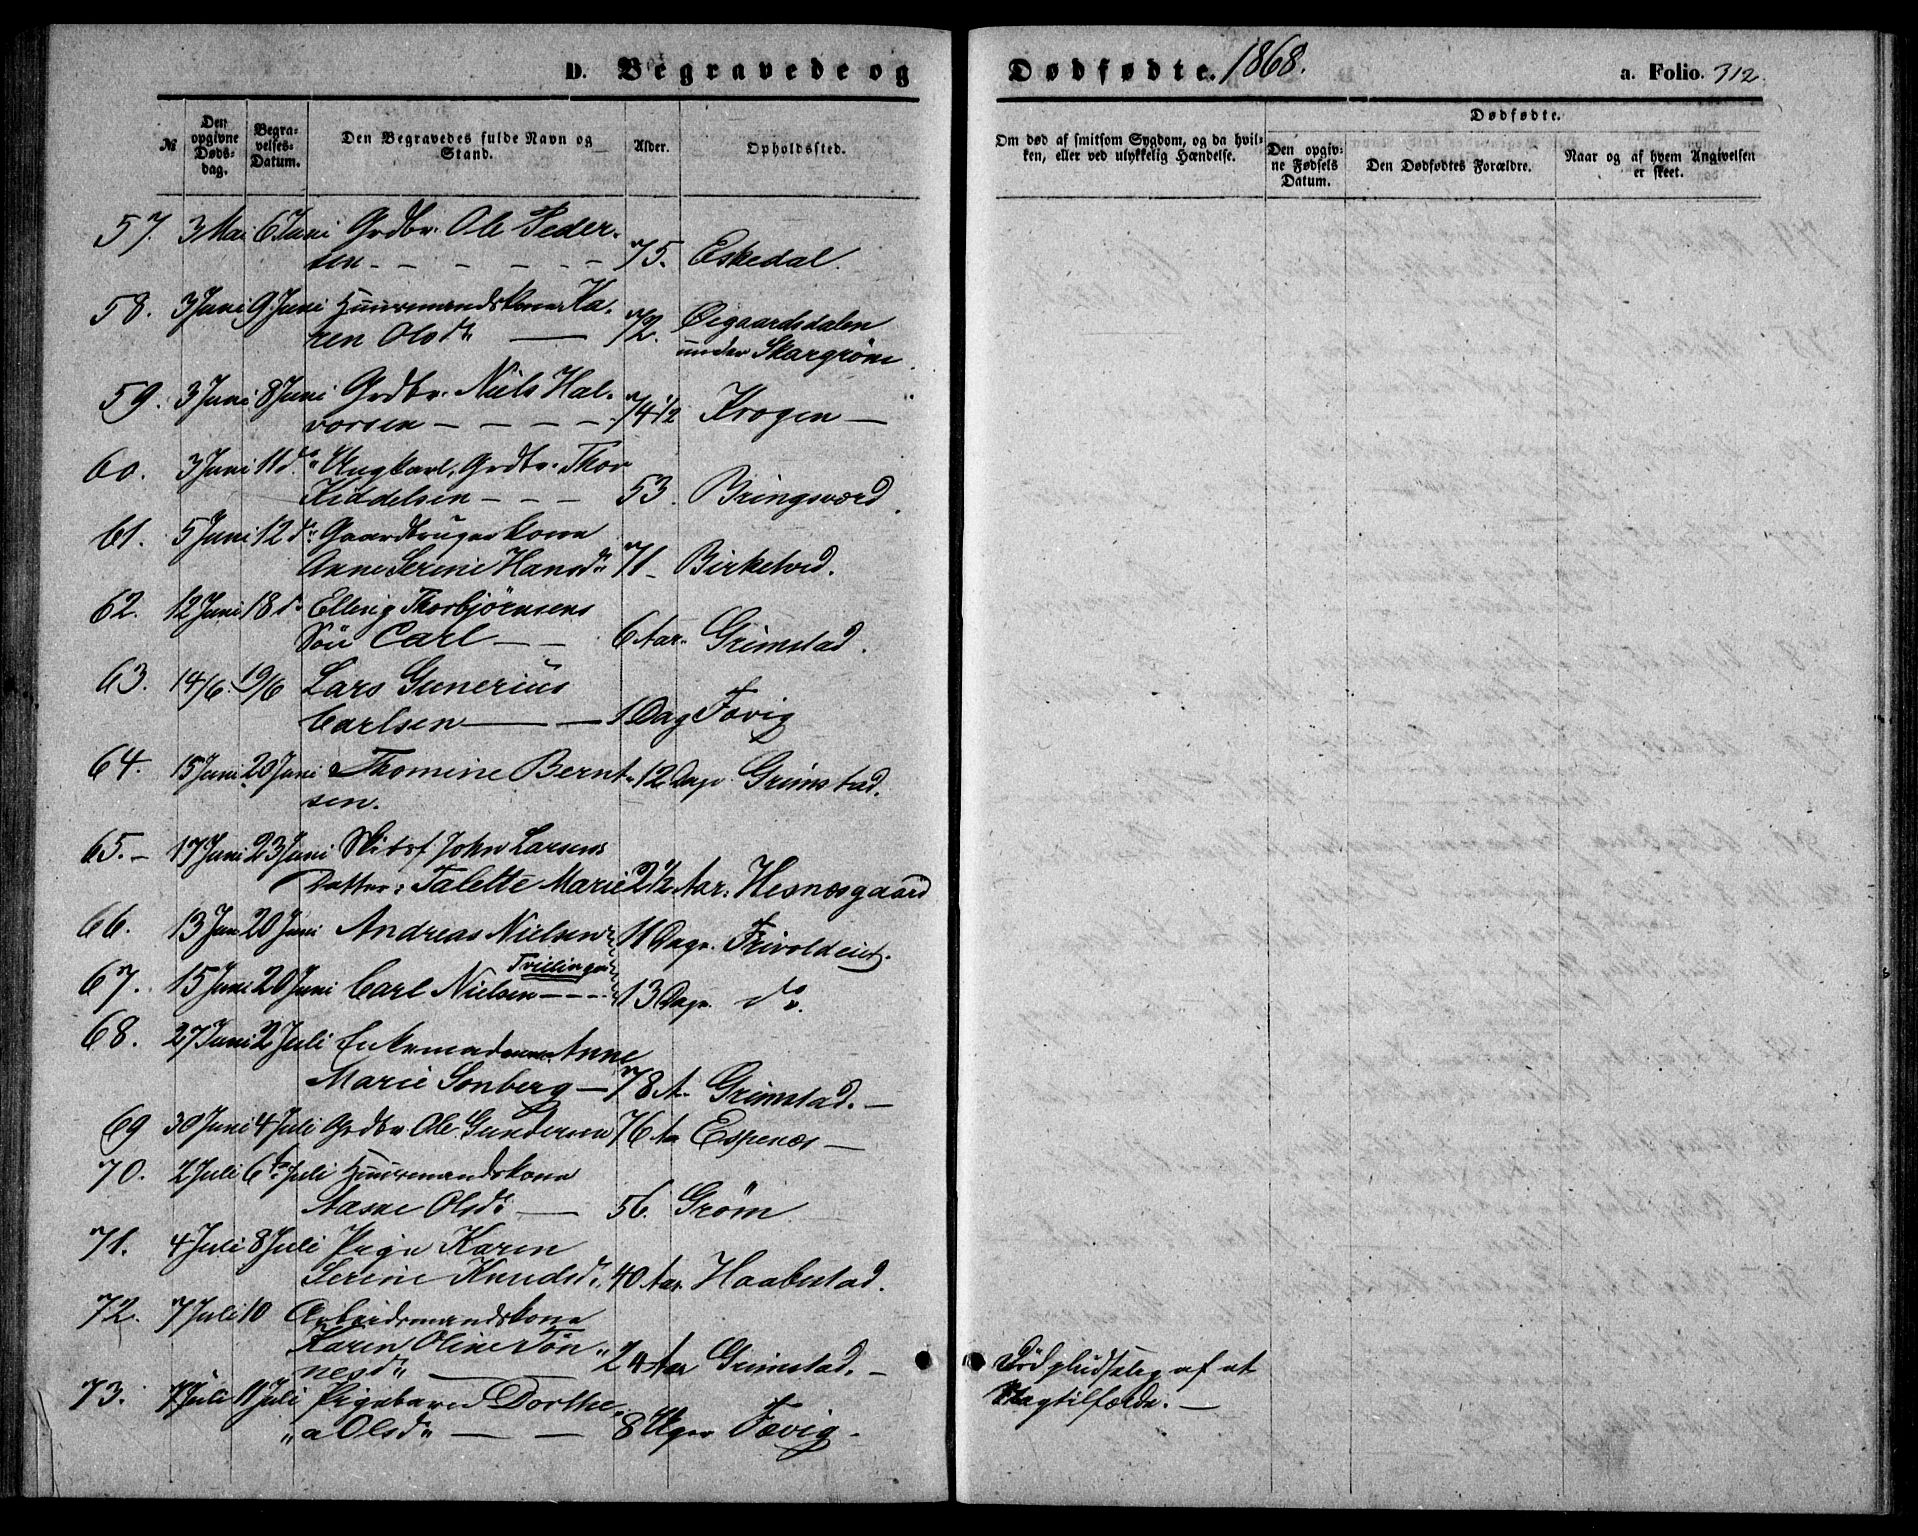 D. Begravede og Dødfødte. 1868. a. Folio. 312.
№ Den opgivne Dødsdag. Begravelses-Datum. Den Begravedes fulde Navn og Stand. Alder. Opholdssted. Om død af smitsom Sygdom, og da hvilken, eller ved ulykkelig Hændelse. Dødfødte. Den opgivne Fødsels Datum. Den Dødfødtes Forældre. Naar og af hvem Angivelsen er skeet.
57. 3 Mai 6 Juni Grdbr. Ole Peder-
sen - - - - - - 75. Eskedal.
58. 3 Juni 9 Juni Huusmandskone Ka-
ren Olsdr — 72. Øigaardsdalen
under Skargrøm.
59. 3 Juni 8 Juni Grdbr. Niels Hal-
vorsen - - - - 74 1/2 Krogen —
60. 3 Juni 11 do Ungkarl, Grdbr. Thor
Kiddelsen - - - 53. Bringsværd.
61. 5 Juni 12 do Gaardbrugerkone
Anne Serine Hansdr 71 - Birketved.
62. 12 Juni 18 do Ellevig Thorbjørnsens
Søn Carl - - 6 Aar. Grimstad.
63. 14/6. 19/6 Lars Gunerius
Carlsen — - 1 Dag Fævig
64. 15 Juni 20 Juni Thomine Bernt-
sen. 12 Dage Grimstad.
65. - 17 Juni 23 Juni Skibsf John Larsens
Datter: Talette Marie 2 1/2 Aar. Hesnæsgaard
66. 13 Jun 20 Juni Andreas Nielsen 11 Dage. Frivoldeiet.
67. 15 Juni 20 Juni Carl Nielsen - - - - Tvillinger 13 Dage do.
68. 27 Juni 2 Juli Enkemadame Anne
Marie Sonberg - 78 A. Grimstad. -
69 30 Juni 4 Juli Grdbr Ole Gundersen 76 Aa Espenæs —
70. 2 Juli 6te Juli Huusmandskone
Aasne Olsdr — 56. Grøm
71. 4 Juli 8 Juli Pige Karen
Serine Knudsdr. 40 Aar Haabestad.
72. 7 Juli 10 Arbeidsmandskone
Karen Oline Tøn-
nesdr — 24 Aar Grimstad. - Død pludselig af et
Slagtilfælde. —
73. 7 Juli 11 Juli Pigebarn Dorthe-
a Olsdr — — 8 Uger Fævig -